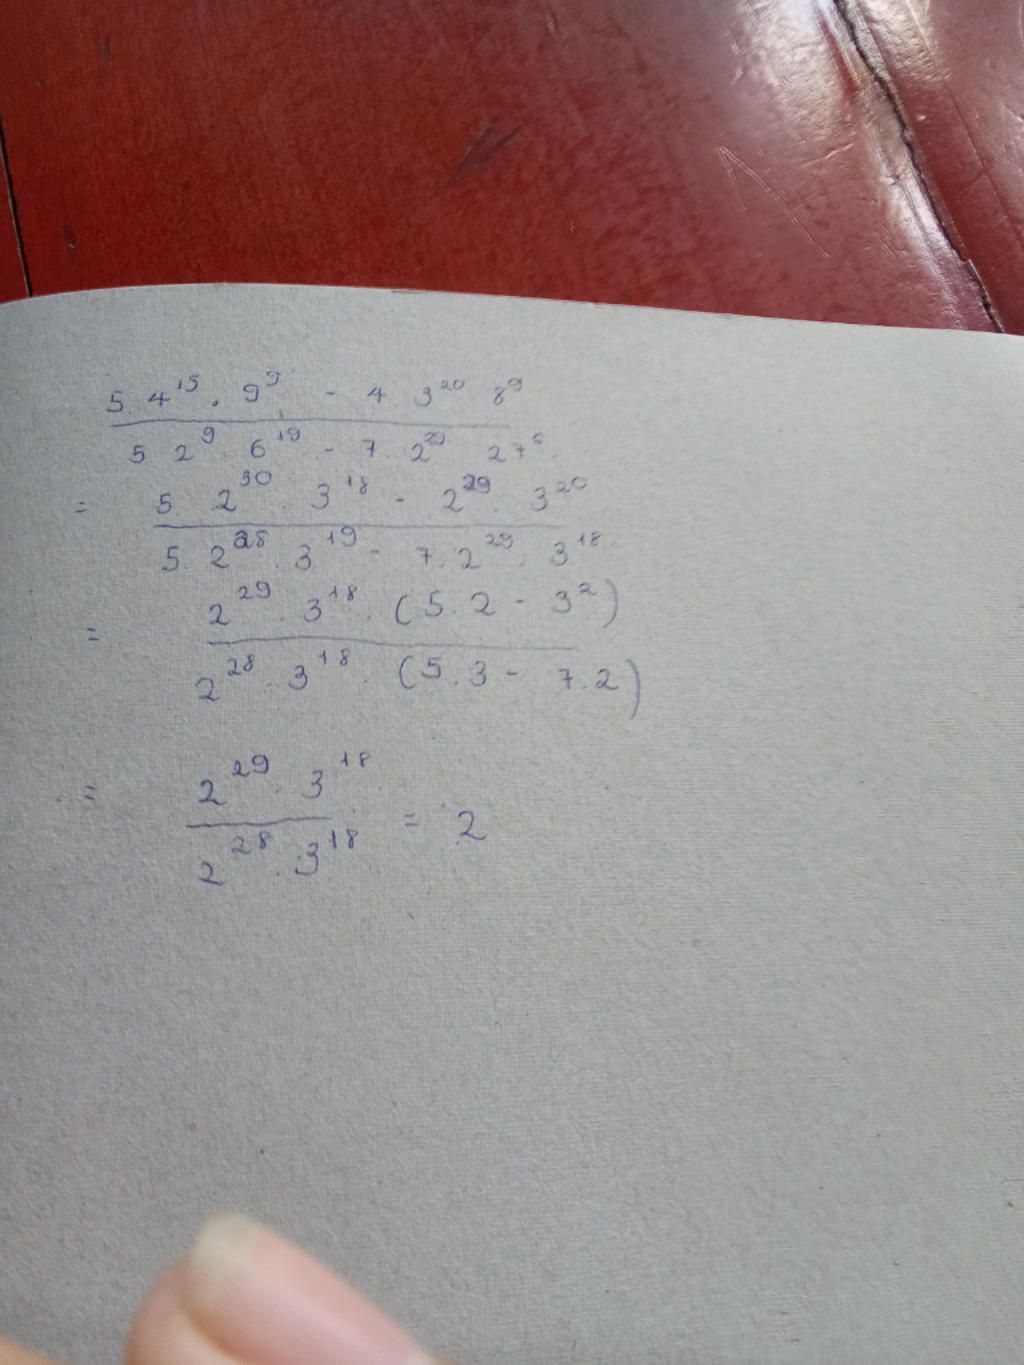 5 . 4^15 . 9^9 - 4 . 3^20 . 8^9
5 . 2^9 . 6^19 - 7 . 2^29 . 27^6
= 5 . 2^30 . 3^18 - 2^29 . 3^20
5 . 2^28 . 3^19 - 7 . 2^29 . 3^18
= 2^29 . 3^18 . (5 . 2 - 3^2)
2^28 . 3^18 . (5 . 3 - 7 . 2)
= 2^29 . 3^18
2^28 . 3^18 = 2